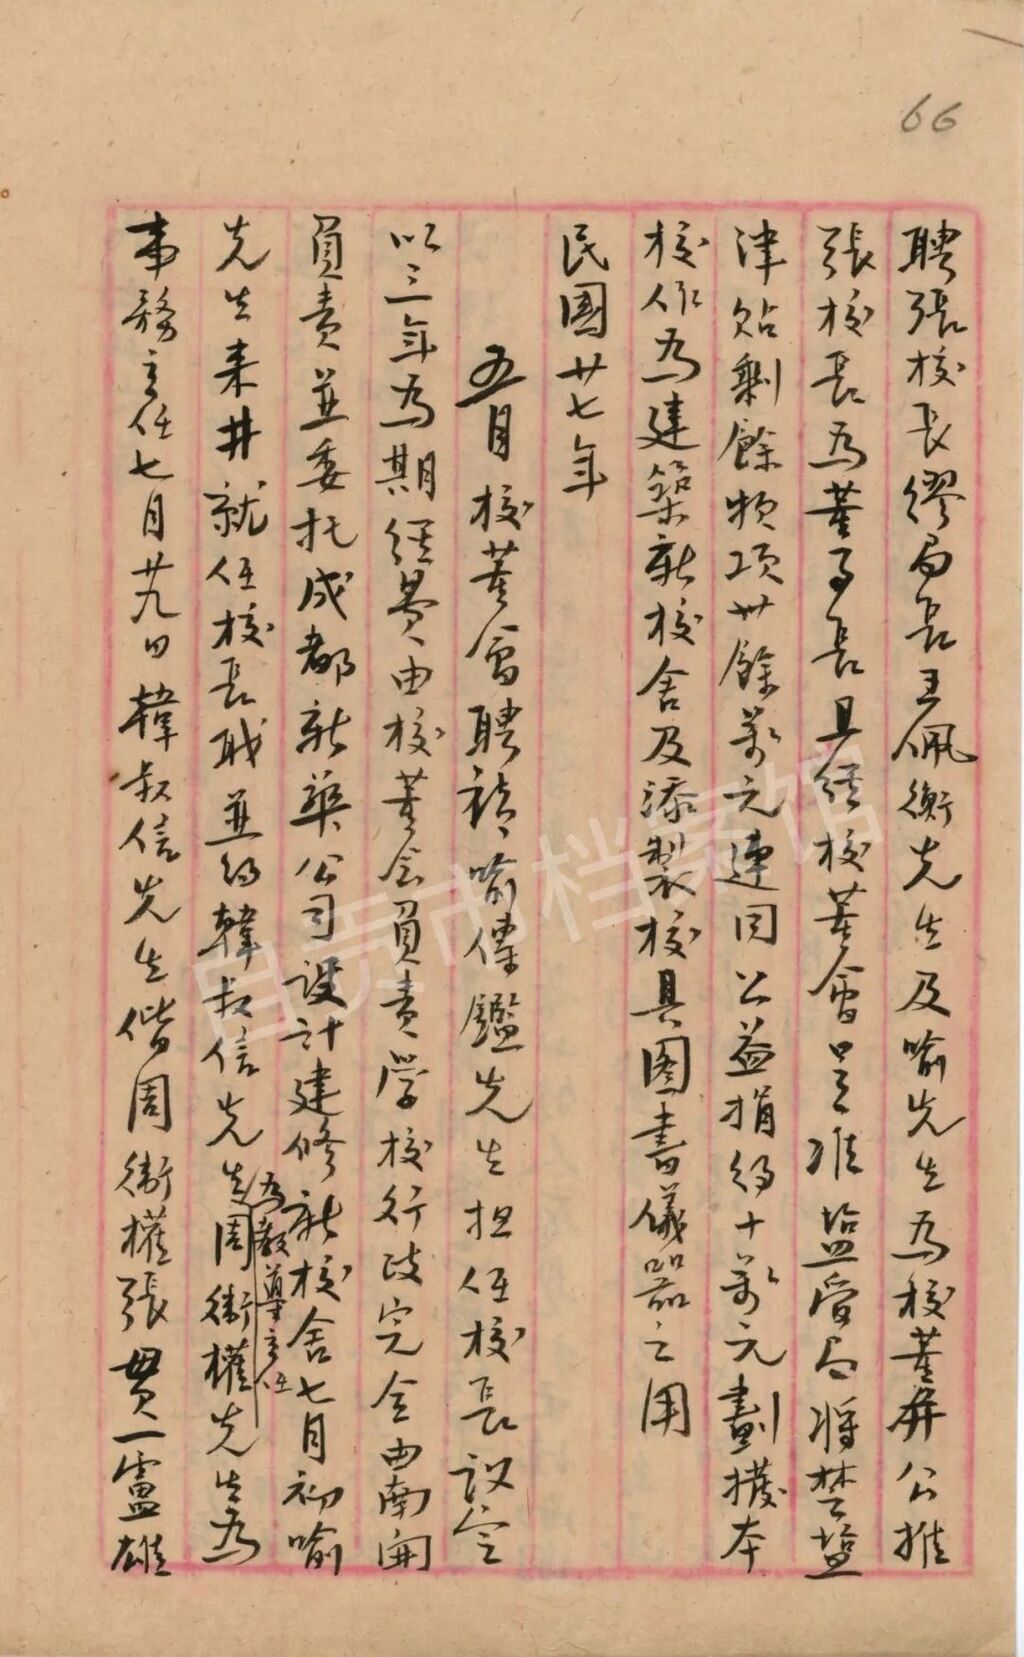 66
聘張校長繆局長王佩衡先生及喻先生為校董并公推
張校長為董事長且經校董會呈准塩管局將楚塩
津貼剩餘款項卅餘萬元連同公益捐約十萬元劃撥本
校作為建築新校舍及添製校具圖書儀器之用
民國廿七年
五月校董會聘請喻傳鑑先生担任校長議定
以三年為期經費由校董会負責學校行政完全由南開
負責並委托成都新華公司設計建修新校舍七月初喻
先生来井就任校長职並約韓叔信先生為教導主任周衡權先生為
事務主任七月廿九日韓叔信先生偕周衡權張貫一盧雄
自贡市档案馆